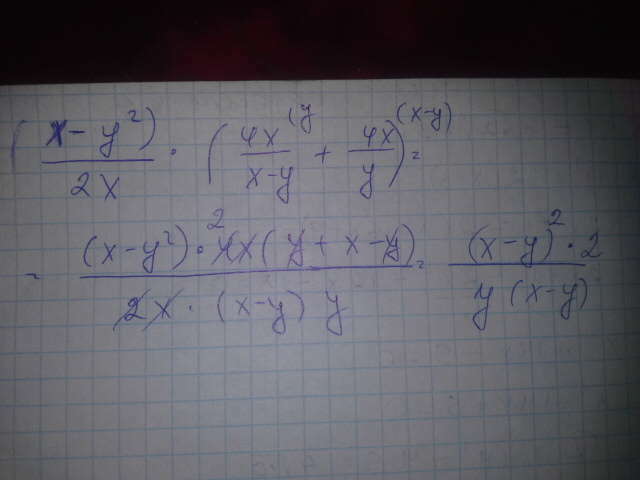 (x-y²)/2x · (4x/(x-y) (y + 4x/y (x-y)) =
= (x-y²)·4x 2 (y+x-y)/2x·(x-y)y = (x-y)²·2/y(x-y)